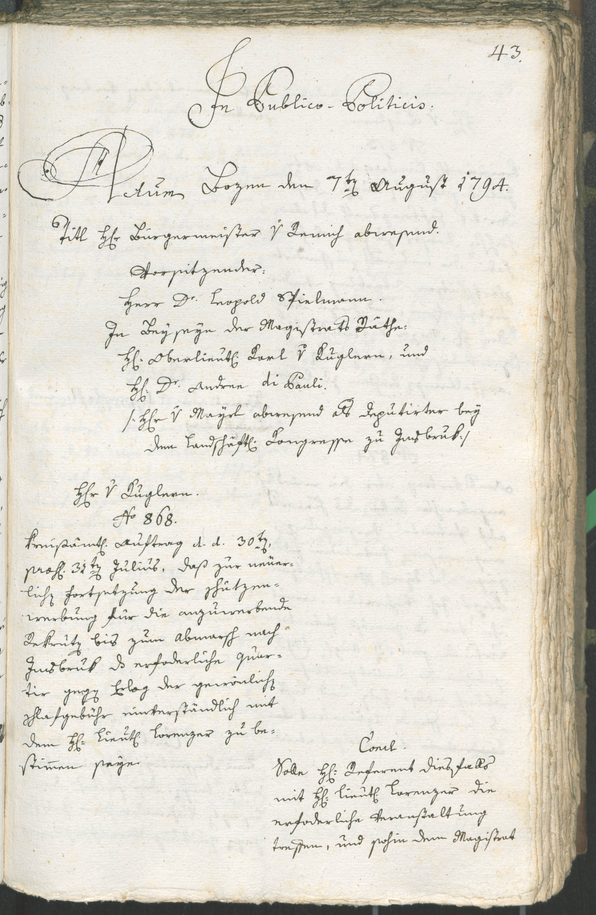 43.
In Publico-Politicis.
Actum Bozen den 7ten August 1794.
Titl Hr Bürgermeister v Remich abwesend.
Vorsitzender:
Herr Dr. Leopold Spielmann.
In Beyseyn der Magistrats Räthe:
H: Oberlieut: Karl v Kuglern, und
H: Dr. Andree di Pauli.
/: Hr v Mayrl abwesend als deputirter bey
dem Landschäftl: Kongresse zu Insbruk :/
Hr v Kuglern.
No 868.
Kreisämtl: Auftrag d. d. 30ten
praes: 31ten Julius, daß zur neuer-
lichen Fortsetzung der Schützen-
werbung für die anzuwerbende
Rekruten bis zum Abmarsch nach
Insbruk das erforderliche Quar-
tir gegen Erlag der gewönlichen
Schlafgebühr einverständlich mit
dem H: Lieut: Lorenzer zu be-
stimmen seye.
Concl.
Solle H: Referent diesfalls
mit H: Lieut: Lorenzer die
erforderliche Veranstaltung
treffen, und sohin dem Magistrat